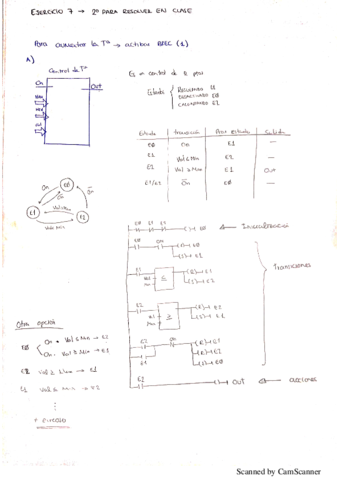 EJERCICIO 7 → 2º PARA RESOLVER EN CLASE
Para aumentar la Tª → activar APEC (1)
A)
Control de Tª
On
Out
Es un control de 2 pos
Estados
DESACTIVADO E0
CALENTANDO E2
Estado Transición Prox estado Salida
E0 On E1 —
E1 Val ≤ Min E2 —
E2 Val ≥ Max E1 Out
E1/E2 On E0 —
E0
On
On
E1
E2
E0 E1 E2
(S)→ E0
← Inicialización
E0 On
(R)→ E0
(S)→ E1
Transiciones
E1
≤
Val
Min
(R)→ E1
(S)→ E2
E2
≥
Val
Max
(R)→ E2
(S)→ E1
Otra opción
E0
On + Val ≤ Min → E2
On · Val ≥ Min → E1
E2 Val ≥ Max → E1
E1 Val ≤ Min → E2
E2 On
(R)→ E1
(R)→ E2
(S)→ E0
E1
E2
( )→ OUT ← acciones
Scanned by CamScanner